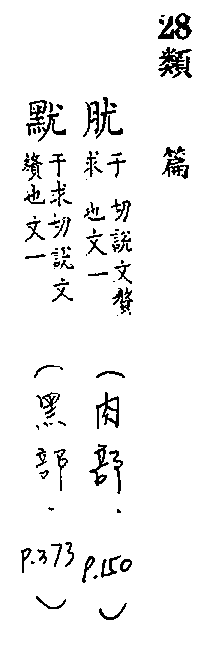 28類篇
肬 于求切說文贅也文一 (肉部.p.150)
于求切說文贅也文一 (黑部.p.373)